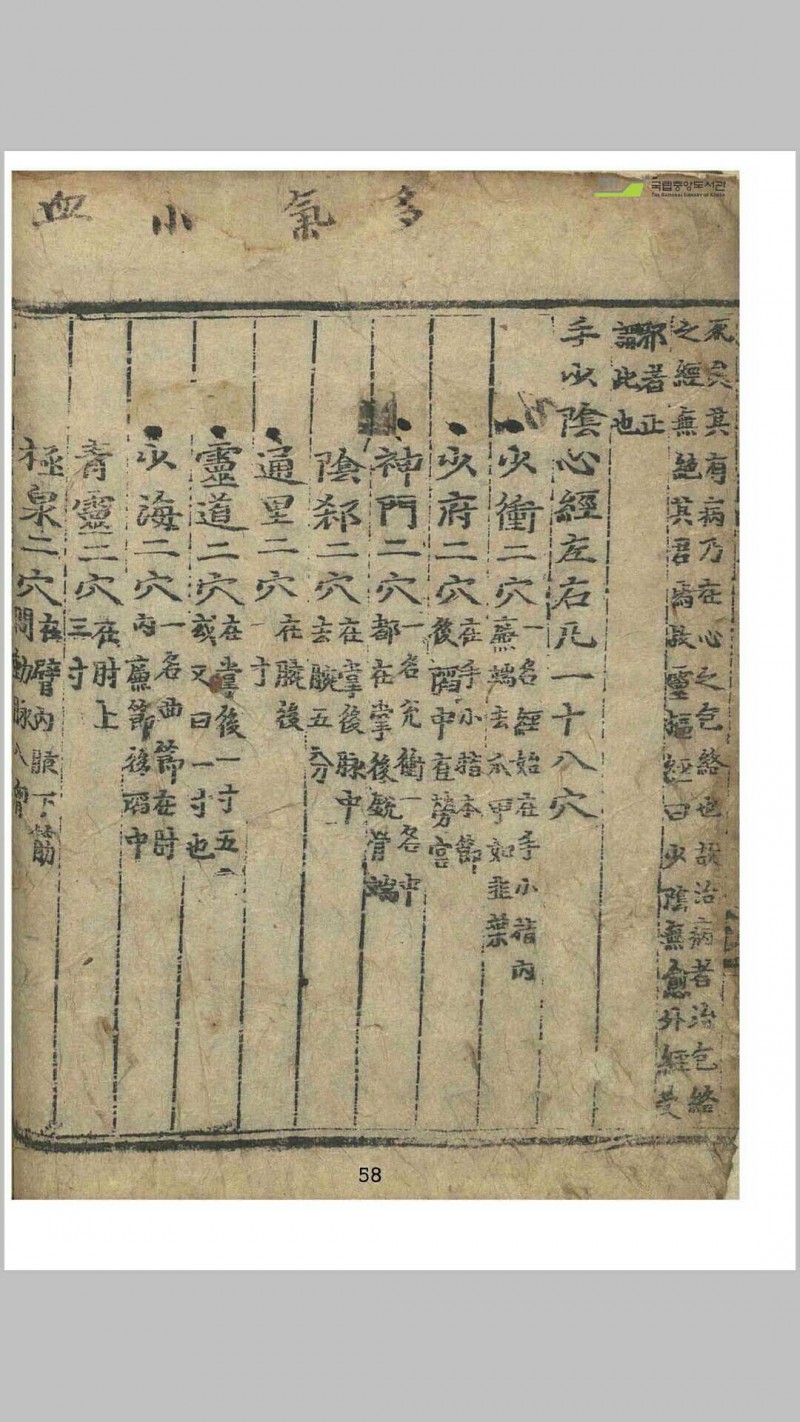 국립중앙도서관
THE NATIONAL LIBRARY OF KOREA
多氣小血
死矣其有病乃在心之包絡也故治病者治包絡
之經無絶其君焉故靈樞經曰少陰無愈外經受
邪者正
謂此也
手少陰心經左右凡一十八穴
少衝二穴一名經始在手小指內
廉端去爪甲如韭葉
少府二穴在手小指本節
後陷中直勞宮
神門二穴一名兊衝一名中
都在掌後銳骨端
陰郄二穴在掌後脉中
去腕五分
通里二穴在腕後
一寸
靈道二穴在掌後一寸五
或又曰一寸也
少海二穴一名曲節在肘
內廉節後陷中
青靈二穴在肘上
三寸
極泉二穴在臂內腋下筋
間動脉入
58